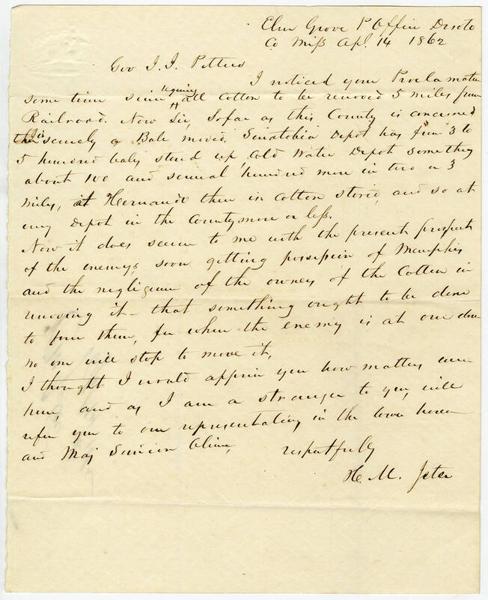 Elm Grove P Office Desoto
Co Miss Apl. 14 1862
Gov J. J. Pettus
I noticed your Proclamation
some time since requiring all cotton to be moved 5 miles from
Railroad. Now Sir, so far as this County is concerned
there is scarcely a Bale moved. Senatobia Depot has from 3 to
5 hundred bales stored up Cold Water Depot something
about 100 and several hundred more in two or 3
miles, at Hernando there is cotton stored, and so at
every depot in the County more or less.
Now it does seem to me with the present prospects
of the enemys soon getting possession of Memphis
and the negligence of the owners of the Cotton in
moving it that something ought to be done
to force them, for when the enemy is at our door
no one will stop to move it,
I thought I would apprise you how matters were
here, and as I am a stranger to you, will
refer you to our representatives in the lower house
and Maj Simeon Oliver,
respectfully
H. M. Jeter